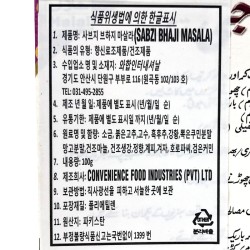 식품위생법에 의한 한글표시
1. 제품명: 사브지 브하지 마살라(SABZI BHAJI MASALA)
2. 식품의 유형: 향신료조제품/건조제품
3. 수입업소 명 및 소재지: 와합인터내셔날
경기도 안산시 단원구 부부로 116 (원곡동 102/103 호)
TEL: 031-495-2855
4. 제조 년 월 일: 제품에 별도 표시 (년/월/일 순)
5. 유통기한: 제품에 별도 표시일 까지 (년/월/일 순)
6. 원료명 및 함량: 소금, 붉은고추, 고수, 흑후추, 강황,
망고분말, 건조마늘, 건조생강, 정향, 계피, 겨자, 호로파씨, 검은커민
7. 내용량: 100g
8. 제조회사: CONVENIENCE FOOD INDUSTRIES (PVT) LTD
9. 보관방법: 직사광선을 피하고 서늘한 곳에 보관
10. 포장재질: 폴리에틸렌
11. 원산지: 파키스탄
12. 부정불량식품신고는국번없이 1399 번
분리배출